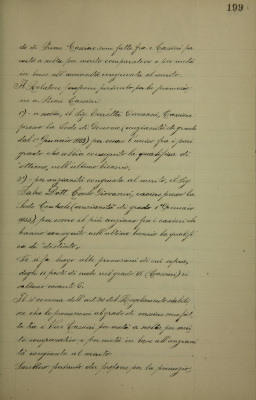 199
do di Primo Cassiere sono fatte fra i Cassieri per
metà a scelta per merito comparativo e per metà
in base all'anzianità congiunta al merito.
Il Relatore propone pertanto per la promozio
ne a Primi Cassieri
1°) - a scelta, il Sig. Giovanni, Cassiere
presso la Sede di Genova, (anzianità di grado
dal 1° Gennaio) per essere l'unico fra i pari
grado che abbia conseguito la qualifica di
ottimo, nell'ultimo biennio.
2°) - per anzianità congiunta al merito, il Sig.
Dott. Carlo Giovanni, cassiere presso la
Sede Centrale (anzianità di grado 1° Gennaio
) per essere il più anziano fra i cassieri che
hanno conseguito nell'ultimo biennio la qualifi
ca di "distinto".
Se si fa luogo alle promozioni di cui sopra,
degli posti di ruolo nel grado (Cassieri) ri
sultano vacanti 6.
Il comma dell'art. del Regolamento stabili
sce che le promozioni al grado di cassiere sono fat
te fra i Vice Cassieri per metà a scelta per meri
to comparativo e per metà in base all'anziani
tà congiunta al merito.
Sarebbero pertanto da proporre per la promozio